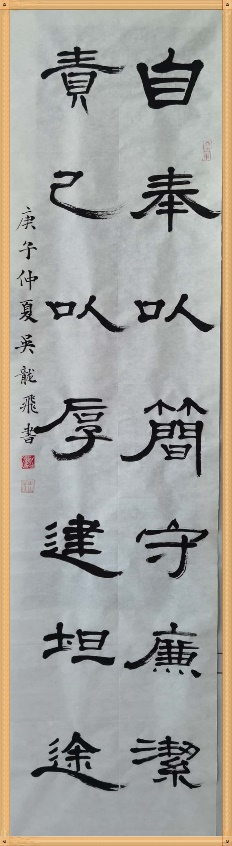 自奉以簡守廉潔
責己以厚建坦途
庚午仲夏吴龍飛書